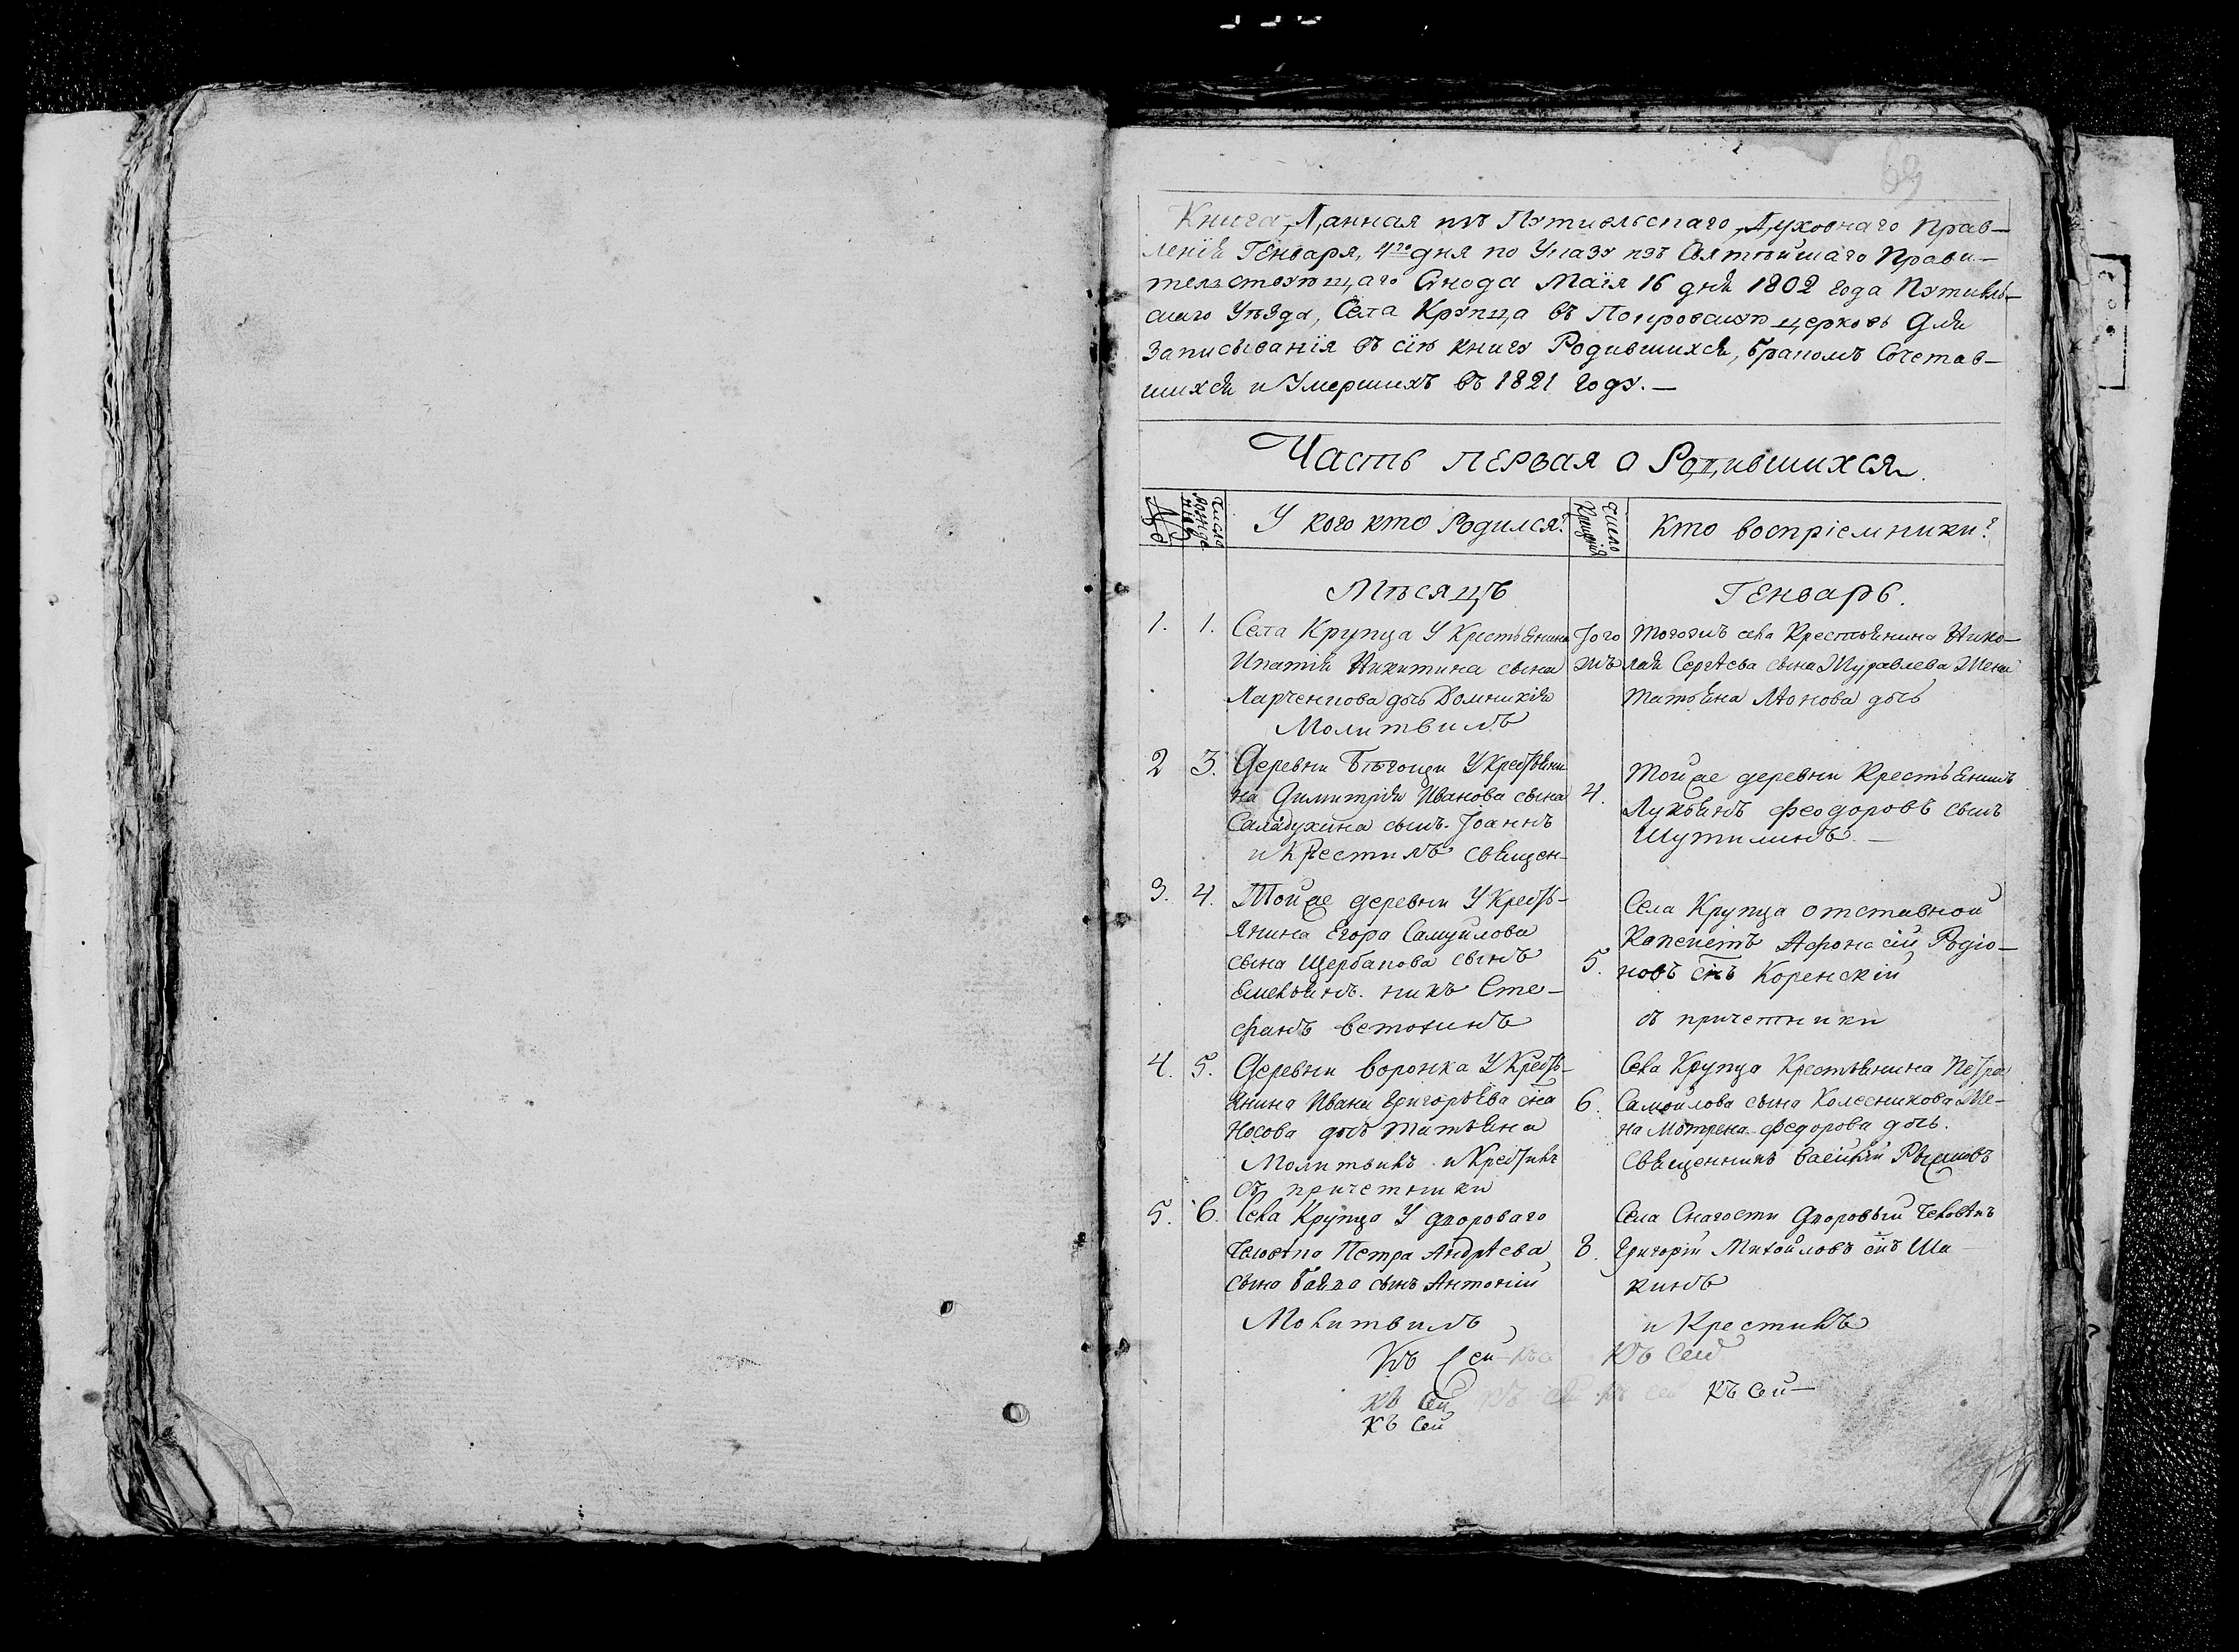 69
Книга, Данная изъ Путивльскаго Духовнаго Прав-
ленія Генваря, 4го дня по Указу изъ Святѣйшаго Прави-
тельствующаго Синода Маія 16 дня 1802 года Путивль-
скаго Уѣзда, Села Крупца въ Покровскую церковь для
записыванія въ сію книгу Родившихся, бракомъ Сочетав-
шихся и Умершихъ въ 1821 году.—
Часть первая о Родившихся
№
Число рожденія
У кого кто Родился?
Число Крещенія
Кто воспріемники?
Мѣсяцъ
Генварь.
1. 1. Села Крупца У Крестьянина
Ипатія Никитина сына
Марченкова дочь Домникія
Молитвилъ
Того
жъ
Тогожъ села Крестьянина Нико-
лая Сергѣева сына Журавлева Жена
Татьяна Леонова дочь
2 3. Деревни Бѣгощи У Крестьяни-
на Димитрія Иванова сына
Саладухина сынъ Іоаннъ
и Крестилъ священ-
4.
Тойже деревни Крестьянинъ
Лукьянъ Феодоровъ сынъ
Шутилинъ.—
3. 4. Тойже деревни У Крестьь-
янина Егора Самуилова
сына Щербакова сынъ
Емельянъ. никъ Сте-
фанъ Ветохинъ
5.
Села Крупца отставной
Капенатъ Афонасій Родіо-
новъ снъ Коренскій
съ причетники
4. 5. Деревни Воронка У Кресть-
янина Ивана Григорьева сна
Носова дочь Татьяна
Молитвилъ и Крестилъ
съ причетники
6.
Села Крупца Крестьянина Петра
Самойлова сына Колесникова Же-
на Мотрена Федорова дочь.
священникъ Василій
5. 6. Села Крупца У двороваго
Человѣка Петра Андрѣева
сына сынъ Антоній
Молитвилъ
8.
Села Снагости Дворовый Человѣкъ
Григорій Михайловъ снъ Ша
кинъ
и Крестилъ
Къ сей Къ сей
къ сей къ сей къ сей къ сей
къ сей